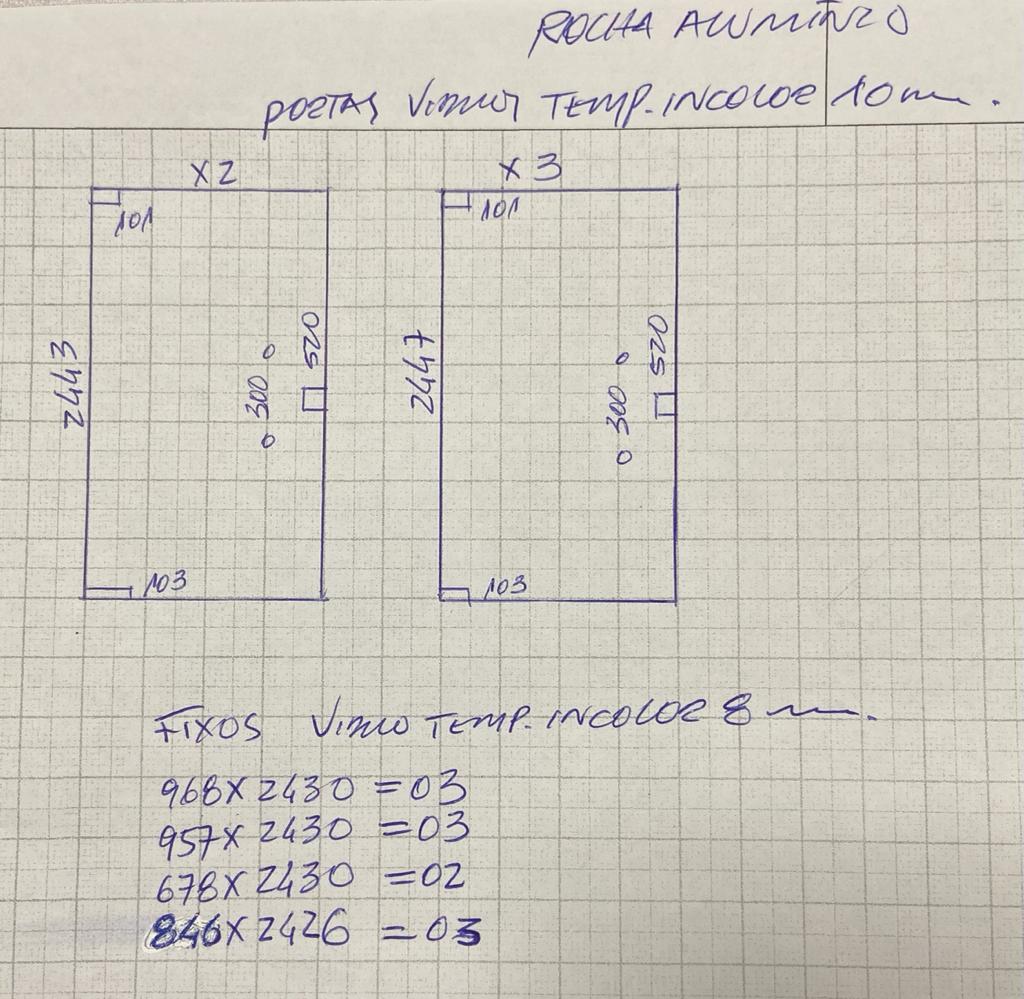 ROCHA ALUMÍNIO
PORTAS VIDROS TEMP. INCOLOR 10mm.
X2
X3
101
101
2443
300
520
2447
300
520
103
103
FIXOS VIDRO TEMP. INCOLOR 8mm.
968X2430 =03
957X2430 =03
678X2430 =02
846X2426 =03